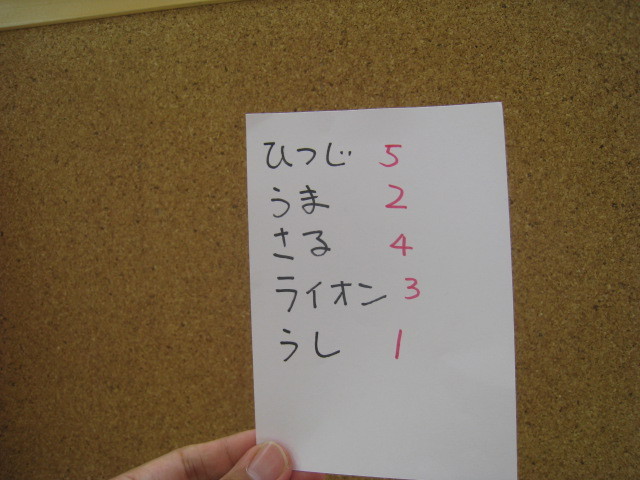 ひつじ 5
うま 2
さる 4
ライオン 3
うし 1